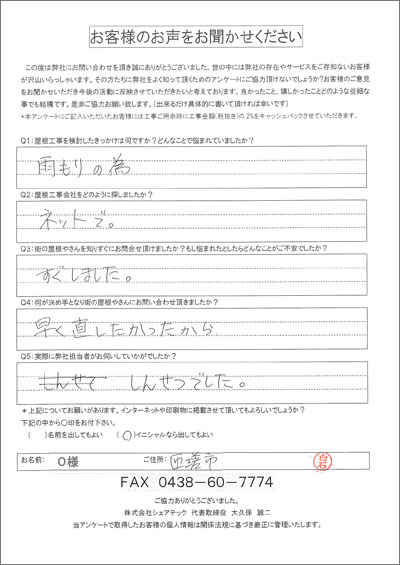 お客様のお声をお聞かせください
この度は弊社にお問い合わせを頂き誠にありがとうございました。世の中には弊社の存在やサービスをご存知ないお客様
が沢山いらっしゃいます。その方たちに弊社をよく知って頂くためのアンケートにご協力頂けないでしょうか?お客様のご意見
をお聞かせいただき今後の活動に反映させていただきたいと考えております。良かったこと、嬉しかったことどのような些細な
事でも結構です。是非ご協力お願い致します。(出来るだけ具体的に書いて頂ければ幸いです)
*本アンケートにご記入いただいたお客様には工事ご用命時に工事金額(税抜き)の2%をキャッシュバックさせていただきます。
Q1:屋根工事を検討したきっかけは何ですか?どんなことで悩まれていましたか?
雨もりの為
Q2:屋根工事会社をどのように探しましたか?
ネットで。
Q3:街の屋根やさんを知りすぐにお問合せ頂けましたか?もし悩まれたとしたらどんなことがご不安でしたか?
すぐしました。
Q4:何が決め手となり街の屋根やさんにお問い合わせ頂きましたか?
早く直したかったから
Q5:実際に弊社担当者がお伺いしていかがでしたか?
しんせつでした。
*上記についてお願いがあります。インターネットや印刷物に掲載させて頂いてもよろしいでしょうか?
下記の中から○印をお付下さい。
( )名前を出してもよい (○)イニシャルなら出してもよい
お名前: O様 ご住所: 匝瑳市
FAX 0438-60-7774
ご協力ありがとうございました。
株式会社シェアテック 代表取締役 大久保 誠二
当アンケートで取得したお客様の個人情報は関係法規に基づき厳正に管理いたします。